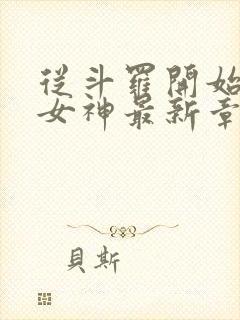 從斗羅開始
女神最新章
貝斯